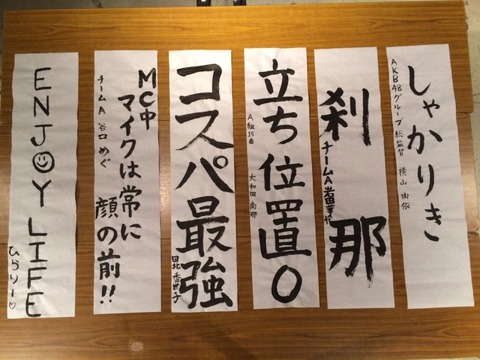 しゃかりき
AKB48グループ 総監督 横山由依
刹那
チームA 岩田華怜
立ち位置0
大和田南那
コスパ最強
田北香世子
MC中
マイクは常に
顔の前!!
チームA 谷口めぐ
ENJOY LIFE
ひらりー♡